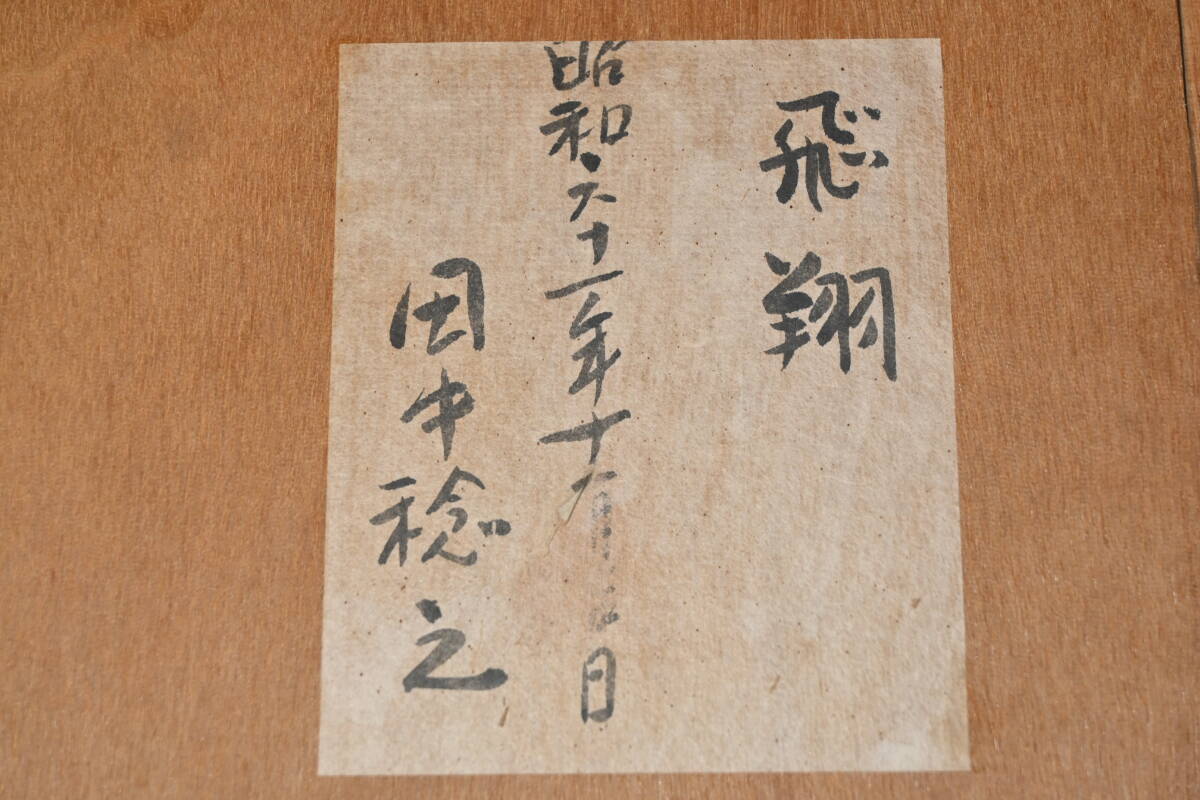 飛翔
昭和六十一年十月 日
田中稔之